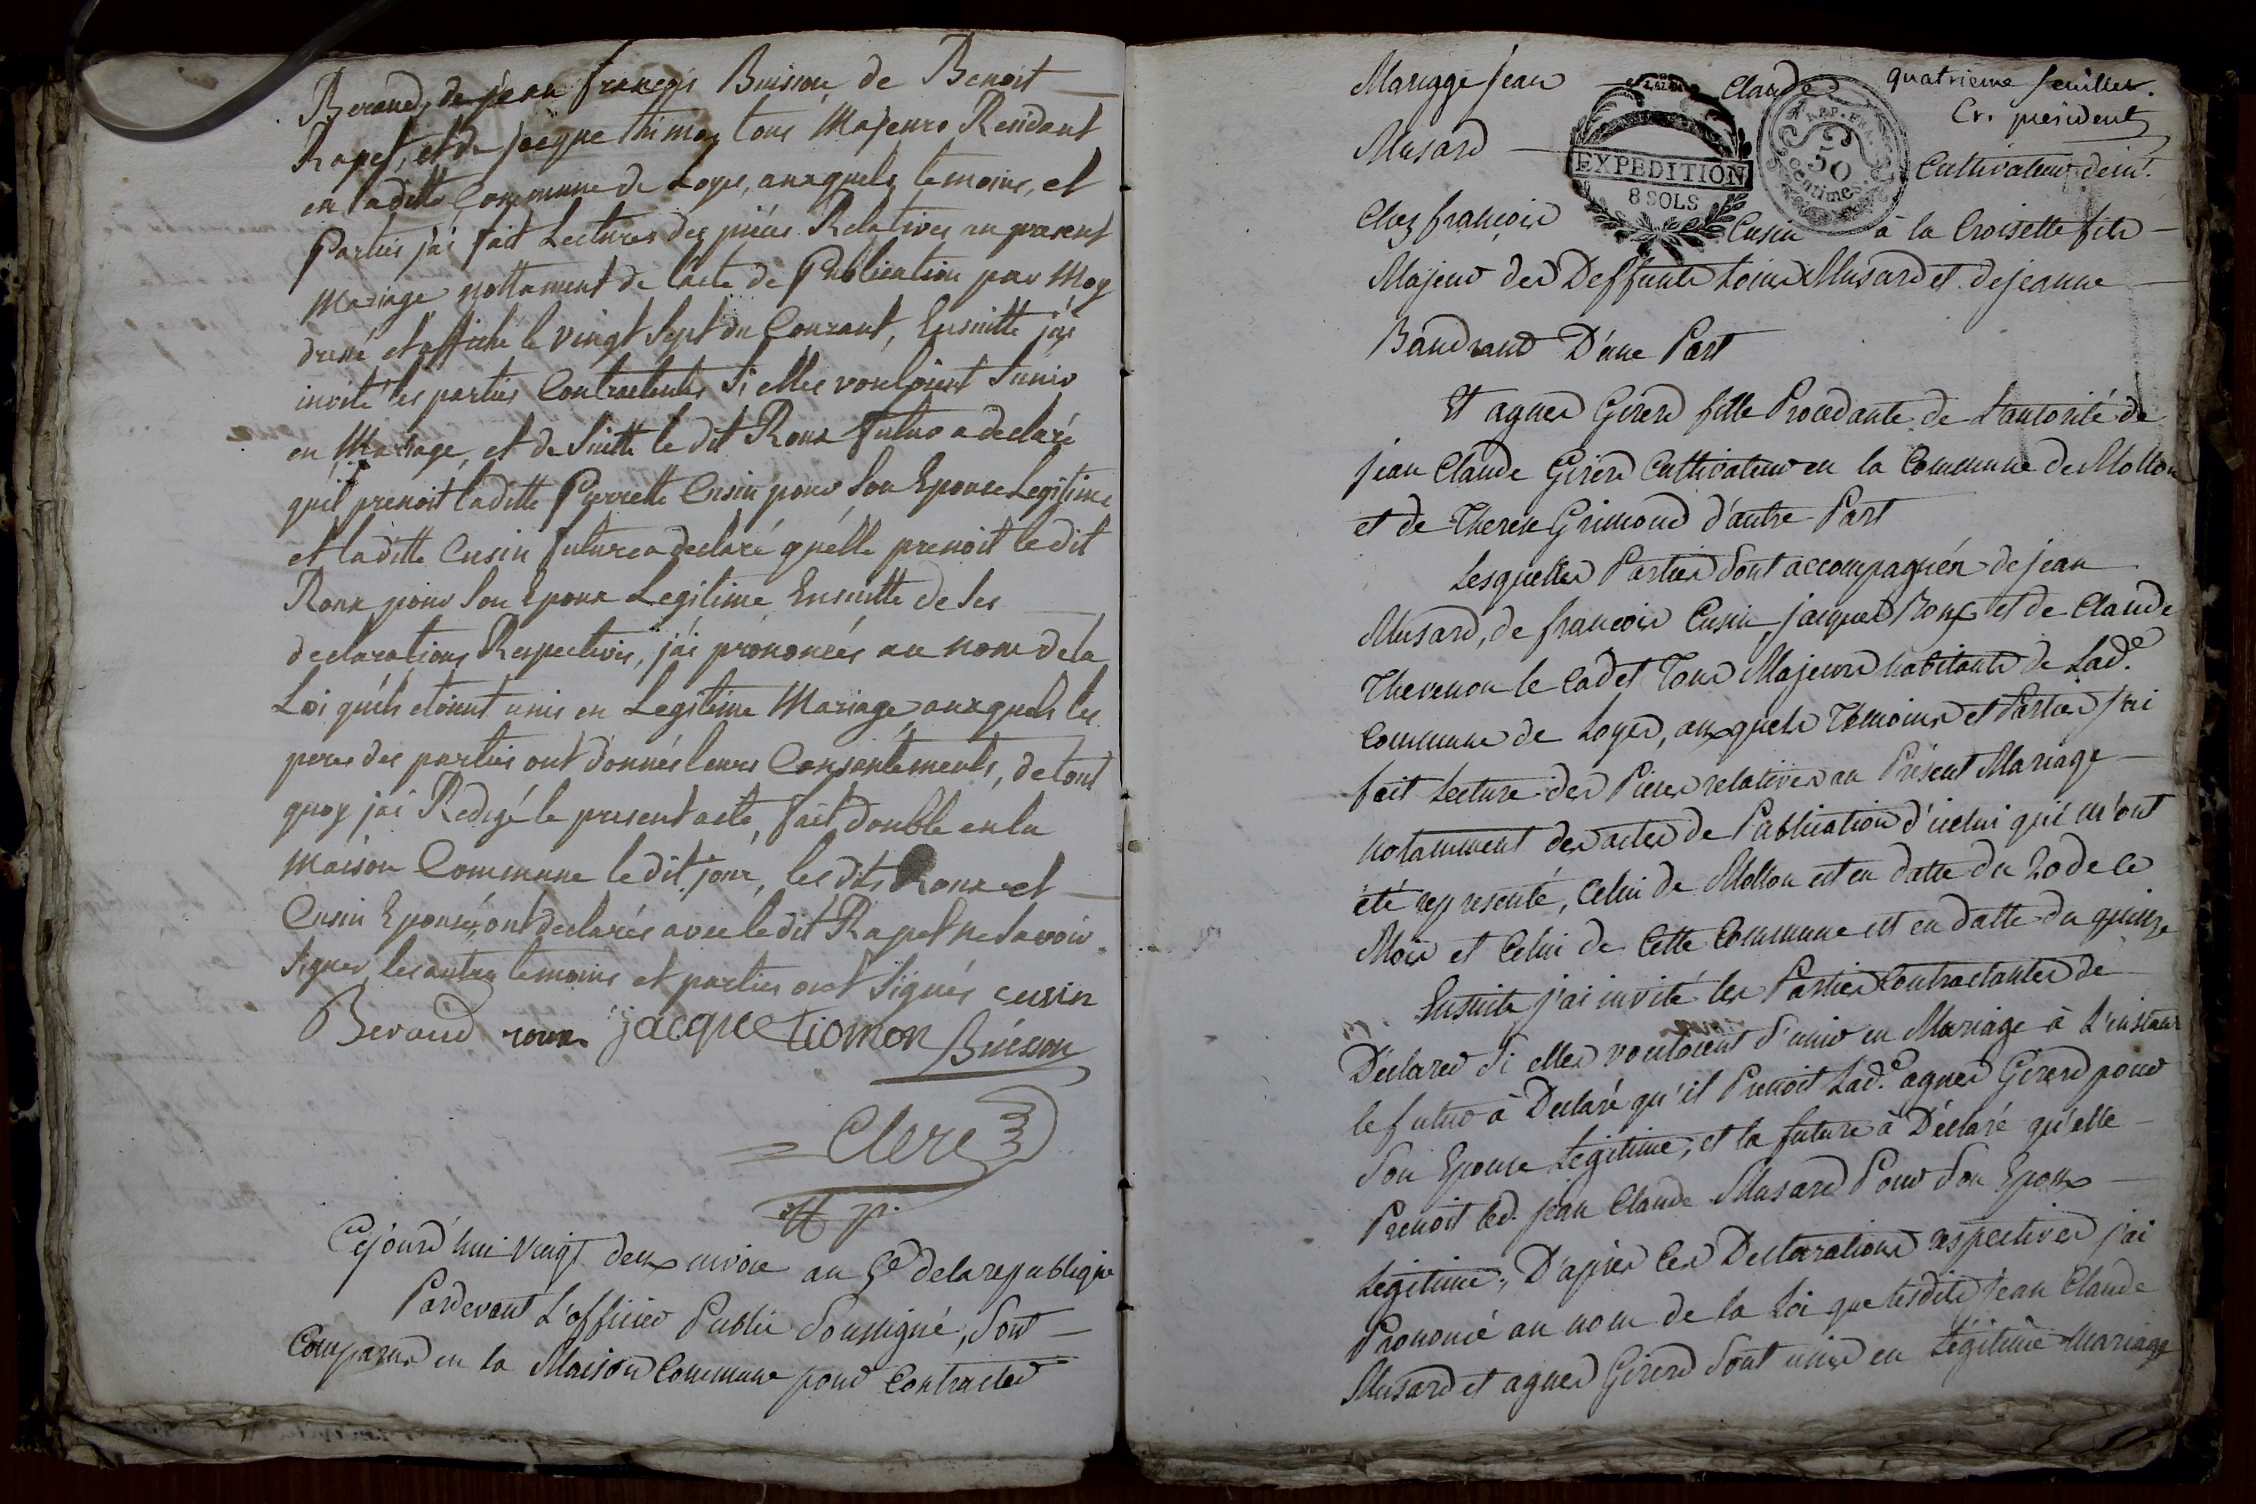 Beraud, de jean françois Buisson, de Benoit
Rapet, et de jacque thimon tous Majeurs Residant
en laditte Commune de Loyes, auxquels temoins, et
Parties j'ai fait Lectures des pièces Relatives au present
Mariage nottament de l'acte de Publication par Moy
dressé et affiché le vingt Sept du Courant, Ensuitte j'ai
invité les parties Contractentes Si elles vouloient S'unir
en Mariage, et de Suitte le dit Roux futur a declaré
qu'il prenoit laditte Pierrette Cusin pour Son Epouse Legitime
et laditte Cusin future a declaré qu'elle prenoit le dit
Roux pour Son Epoux Legitime Ensuitte de Ses
declarations Respectives, j'ai prononcés au nom de la
Loi qu'ils etoient unis en Legitime Mariage auxquels les
peres des parties ont donnés leurs Consentements, de tout
quoy j'ai Redigé le present acte, fait double en la
Maison Commune le dit jour, les dits Roux et
Cusin Epousés, ont declarés avec le dit Rapet ne Savoir
Signer, les autres temoins et parties ont Signés cusin
Beraud roux jacque tiomon Buisson
Clerc
p.
Cejourd'hui vingt deux nivose an 5e de la republique
Pardevant L'officier Public Soussigné, Sont
Comparus en la Maison Commune pour Contracter
quatrieme feuillet.
Cr. president
Mariage jean Claude
Musard Cultivateur demt.
EXPEDITION
8 SOLS
REP. FRA.
50
Centimes
Chez françois Cusin à la Croisette fils
Majeur des Deffunts Loius Musard et de jeanne
Baudrand D'une Part
Et agnes Girerd fille Procedante de L'autorité de
jean Claude Girerd Cultivateur en la Commune de Mollon
et de Therese Grimond d'autre Part
Lesquelles Parties Sont accompagnés de jean
Musard, de francois Cusin, jacques Roux et de Claude
Thevenon le Cadet Tous Majeurs habitants de Lad.e
Commune de Loyes, auxquels Temoins et Parties j'ai
fait Lecture des Pieces relatives au Présent Mariage
notamment des actes de Publication d'icelui qui m'ont
été representé, Celui de Mollon est en datte du 20 de ce
Mois et Celui de Cette Commune est en datte du quinze
Ensuite j'ai invité les Parties Contractantes de
Déclarer Si elles vouloient S'unir en Mariage à L'instant
le futur à Declaré qu'il Prenoit Lad.e agnes Girerd pour
Son Epouse Légitime, et la future à Déclaré qu'elle
Prenoit led. jean Claude Musard Pour Son Epoux
Légitime, D'après Ces Declarations respectives j'ai
Prononcé au nom de la Loi que lesdits jean Claude
Musard et agnes Girerd Sont unis en Légitime Mariage